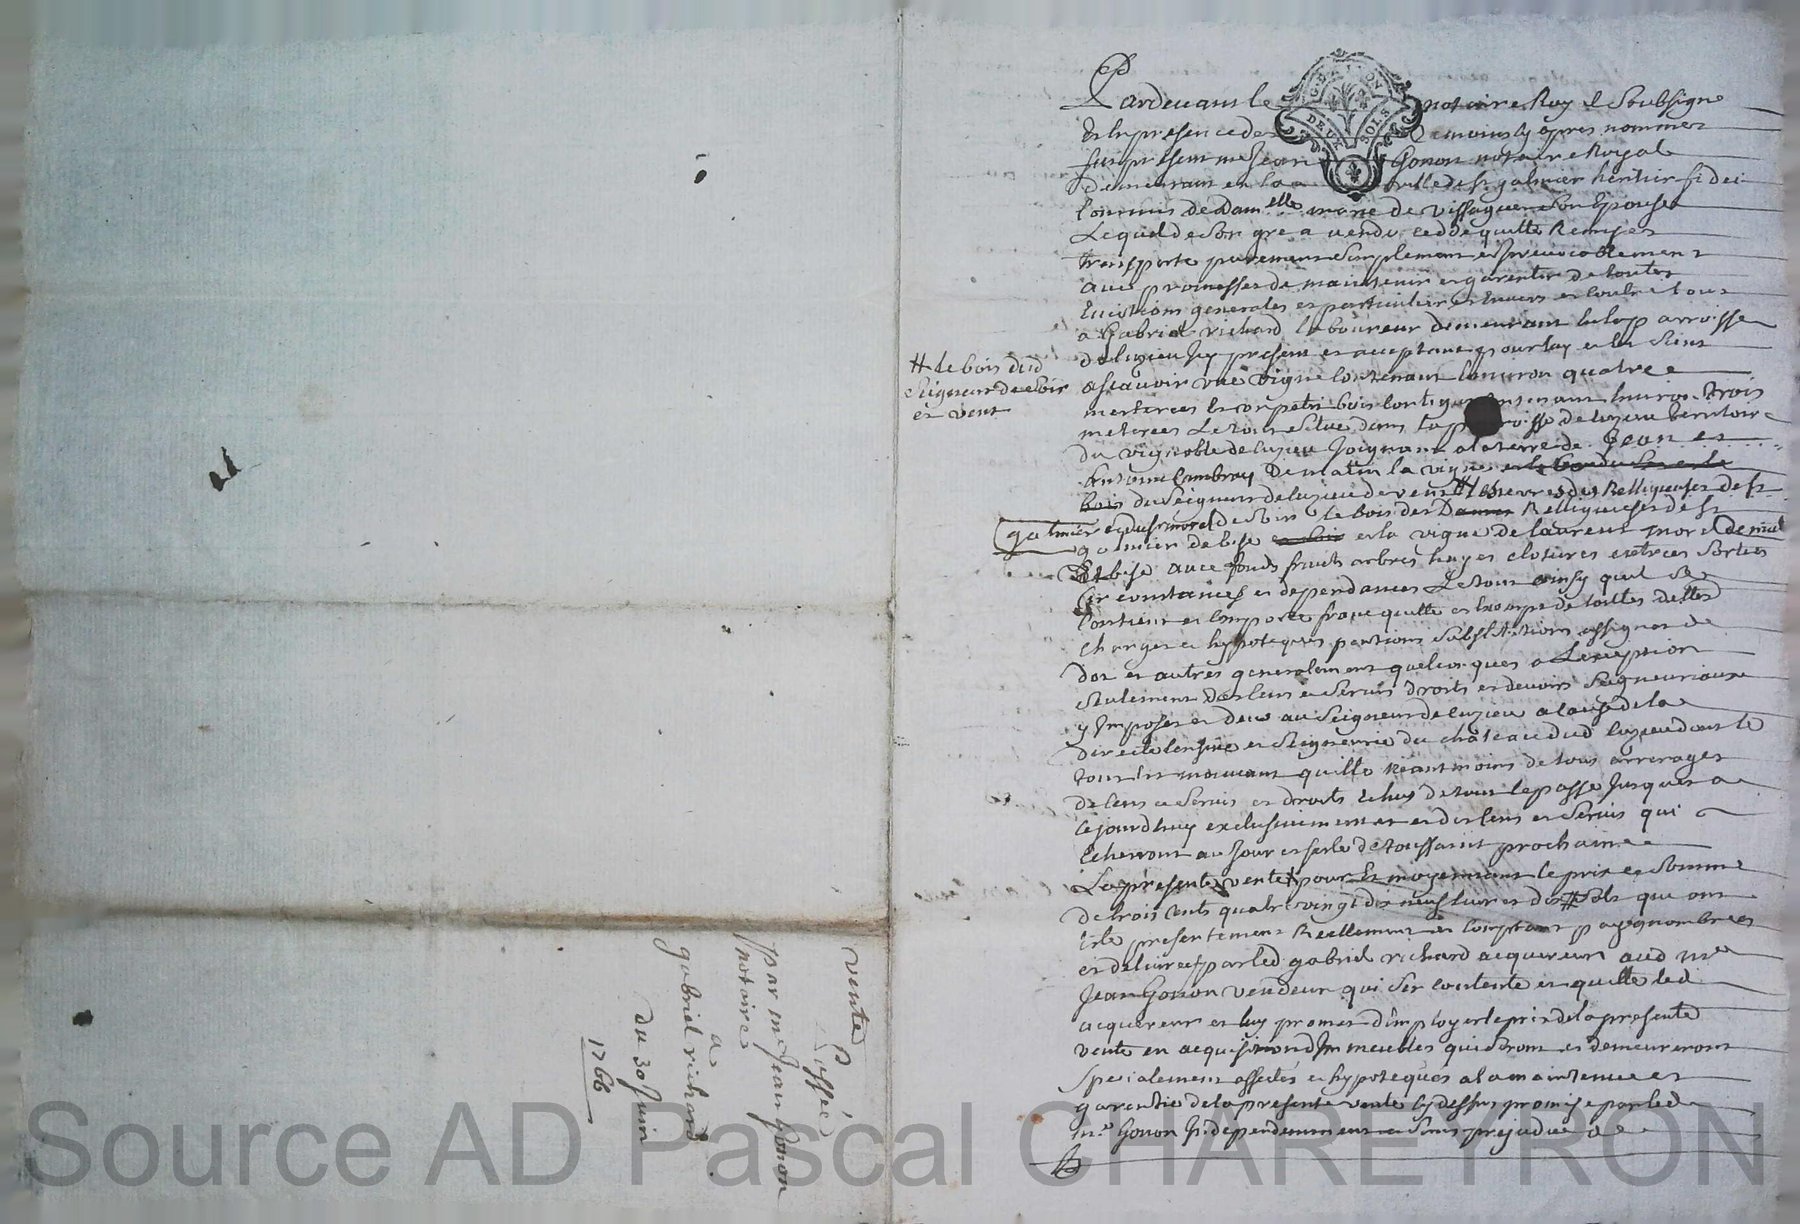 vente
passée
par me Jean Gonon
notoire
a
gabriel richard
du 30 Juin
1766
# le bois dud
seigneur de soir
et vent
GE LION
DEUX SOLS
Pardevant le notaire Royal Soubsigne
et en presence des temoins cy apres nommez
fut present me Jean Gonon notaire Royal
demeurant en la ville de st galmier heritier fidei
commis de Damelle marie de vissaguet son Epouse
Lequel de son gre a vendu cedde quitte Remis et
transporte purement simplement et Irrevocablement
avec promesses de maintenir et garentir de toutes
Evictions generales et particulieres envers et contre tous
a Gabriel richard laboureur demeurant en la parroisse
de luzieu Icy present et acceptant pour luy et les siens
ascavoir une vigne contenant environ quatre
meterees et un petit bois contigu contenant environ trois
meterees Le tout situe dans la parroisse de luzieu territoire
du vignoble de luzieu Joignant a la terre de Jean et
Antoine de matin la vigne
bois du seigneur de luzieu de vent # des Relligieuses de st
galmier de soir le bois des Dames Relligieuses de st
galmier de bise et la vigne de laurent morel de mat
Et bise avec fonds fruits arbres hayes clotures entrees sorties
Circonstances et dependances Le tout ainsy quil se
Contient et Comporte franc quitte et Exempt de toutes dettes
charges et hypoteques pentions substitutions assignat de
dot et autres generalement quelconques a L'exception
seulement des cens et servis droits et devoirs seigneuriaux
y Imposes et deus au seigneur de luzieu a cause de la
directe censive et seigneurie du chateau dud luzieu dont le
tout est mouvant quitte neantmoins de tous arrerages
de cens et servis et droits echus de tout le passe Jusques a
ce jourdhuy exclusivement et des cens et servis qui
Echerront au jour et feste de toussaint prochaine
La presente vente pour et moyennant le prix et somme
de trois cents quatre vingt dix neuf livres dix # sols qui ont
Ete presentement Reellement et comptant payé nombrées
et delivrées par led gabriel richard acquereur aud me
Jean Gonon vendeur qui s'en contente et quitte led
acquereur et luy promet d'imployer le prix de la presente
vente en acquisition d'Immeubles qui seront et demeureront
specialement affectés et hypotequés a la maintenue et
garentie de la presente vente cy dessus promise par led
me Gonon Independemment et sans prejudice a